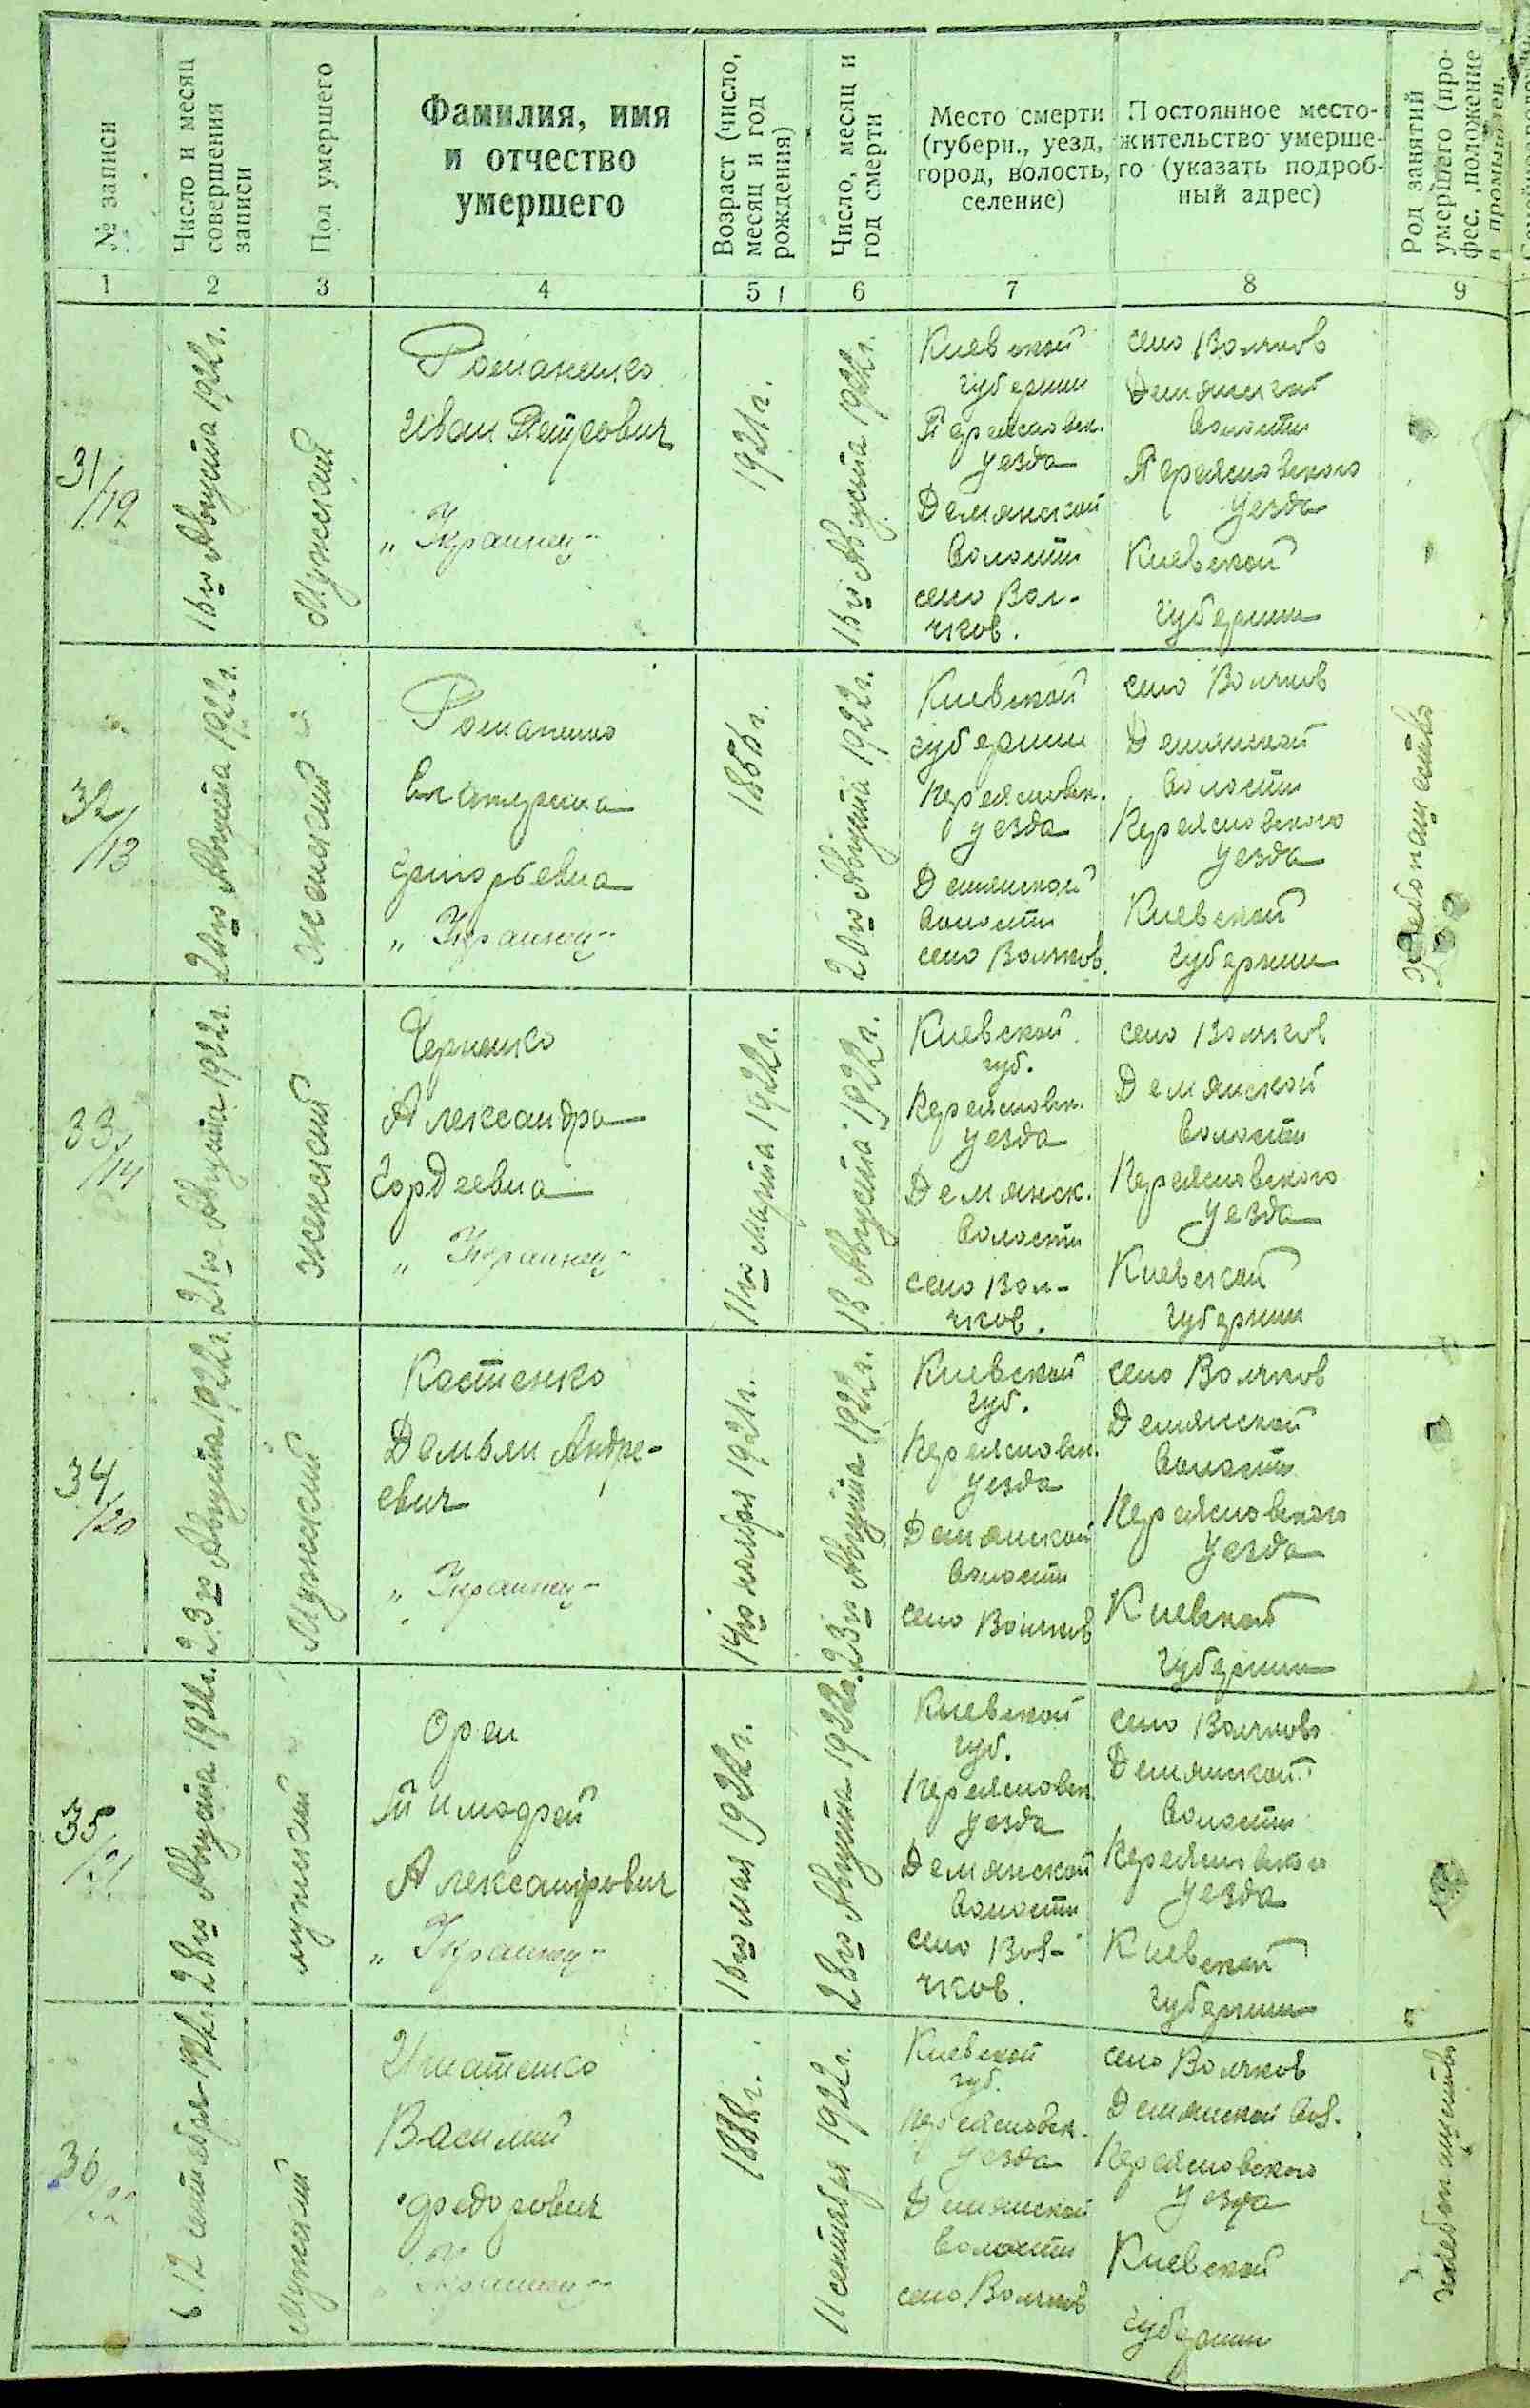 № записи
Число и месяц
совершения
записи
Пол умершего
Фамилия, имя
и отчество
умершего
Возраст (число,
месяц и год
рождения)
Число, месяц и
год смерти
Место смерти
(губерн., уезд,
город, волость,
селение)
Постоянное место-
жительство умерше-
го (указать подроб-
ный адрес)
Род занятий
умершего (про-
фес., положение
в промышлен.
1
2
3
4
5
6
7
8
9
31/19
16го Августа 1922г.
Мужский
Романенко
Иван Петрович
„Украинец“
1921г.
16го Августа 1922г.
Киевской
губернии
Переясловск.
уезда
Демянской
волости
село Вол-
чков.
село Волчков
Демянской
волости
Переясловского
уезда
Киевской
губернии
32/13
20го Августа 1922г.
женский
Романенко
Екатерина
Григорьевна
„Украинец“
1856г.
20го Августа 1922г.
Киевской
губернии
Переясловск.
уезда
Демянской
волости
село Волчков.
село Волчков
Демянской
волости
Переясловского
уезда
Киевской
губернии
хлебопашество
33/14
21го Августа 1922г.
женский
Черненко
Александра
Гордеевна
„Украинец“
11го Марта 1922г.
18 Августа 1922г.
Киевской
губ.
Переясловск.
уезда
Демянск.
волости
село Вол-
чков.
село Волчков
Демянской
волости
Переясловского
уезда
Киевской
губернии
34/20
23го Августа 1922г.
Мужский
Костенко
Домьян Андре-
евич
„Украинец“
14го ноября 1921г.
23го Августа 1922г.
Киевской
губ.
Переясловск.
уезда
Демянской
волости
село Волчков
село Волчков
Демянской
волости
Переясловского
уезда
Киевской
губернии
35/21
28го Августа 1922г.
мужский
Орел
Тимофей
Александрович
„Украинец“
16го мая 1922г.
28го Августа 1922г.
Киевской
губ.
Переясловск.
уезда
Демянской
волости
село Вол-
чков.
село Волчков
Демянской
волости
Переясловского
уезда
Киевской
губернии
36/22
12 сентября 1922г.
Мужский
Игнатенко
Василий
Федорович
„Украинец“
1888г.
11 сентября 1922г.
Киевской
губ.
Переясловск.
уезда
Демянской
волости
село Волчков
село Волчков
Демянской вол.
Переясловского
уезда
Киевской
губернии
хлебопашество